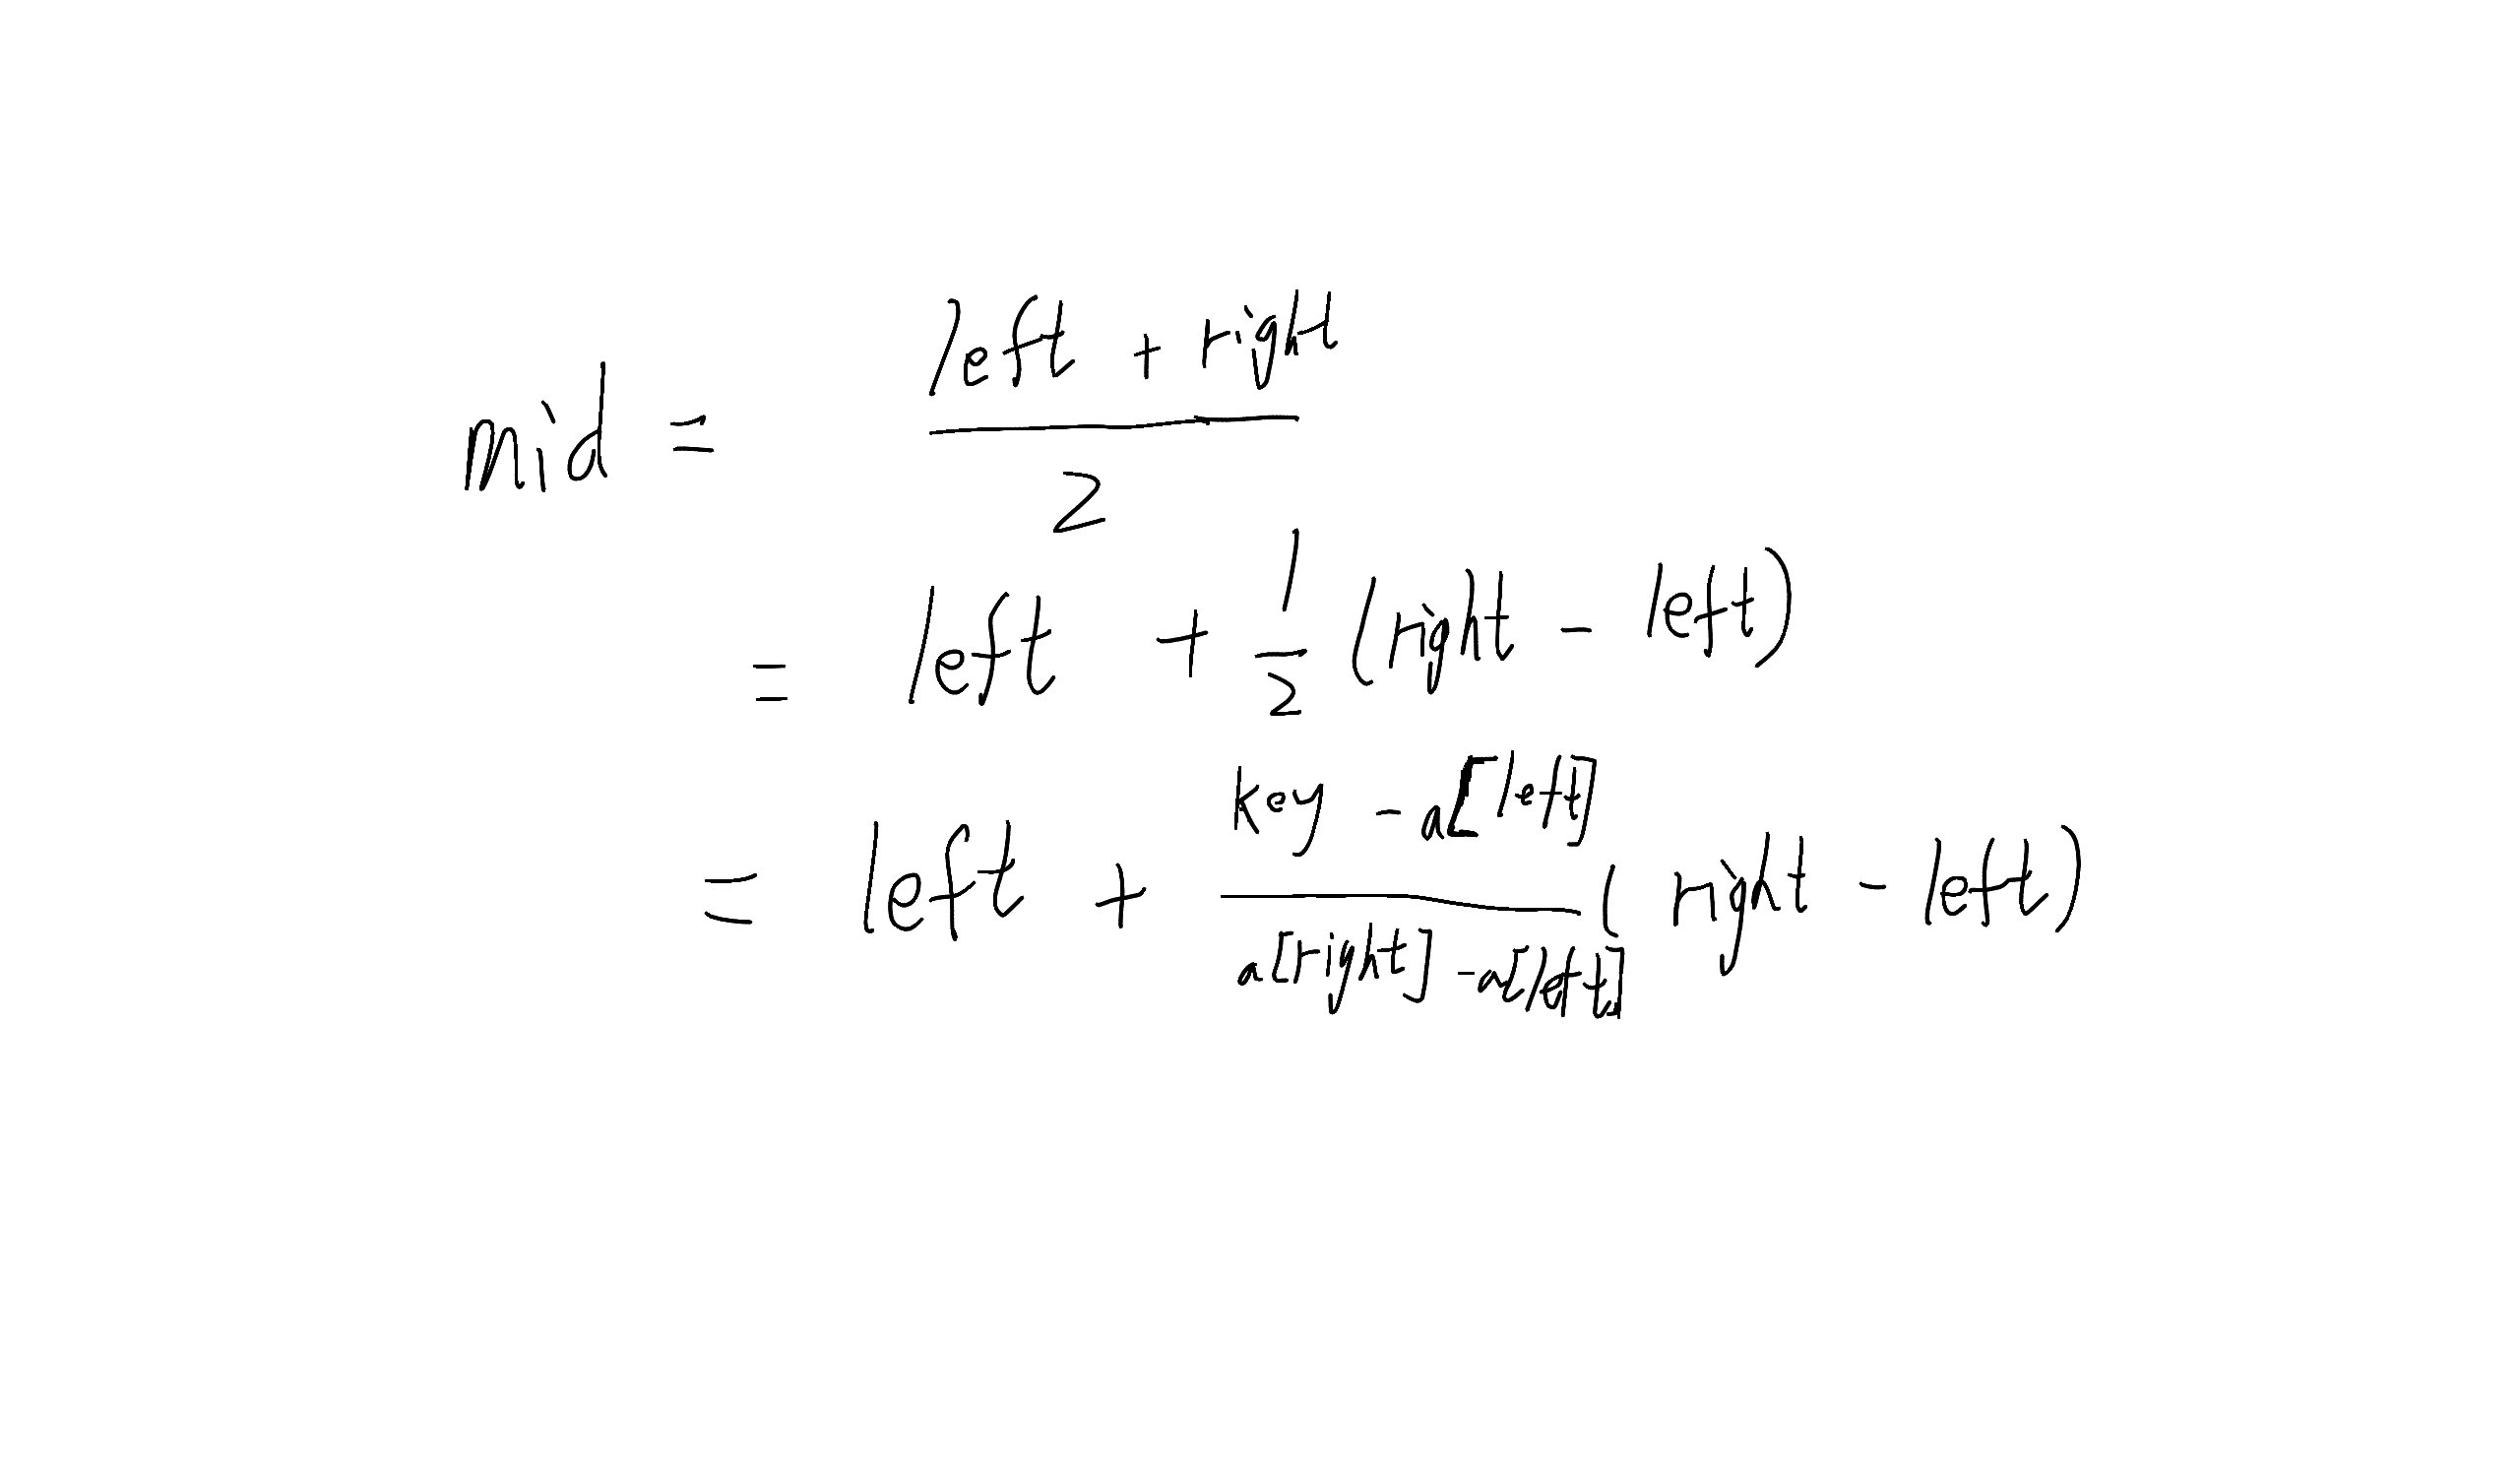 mid = (left + right) / 2
= left + 1/2 (right - left)
= left + (key - a[left]) / (a[right] - a[left]) (right - left)